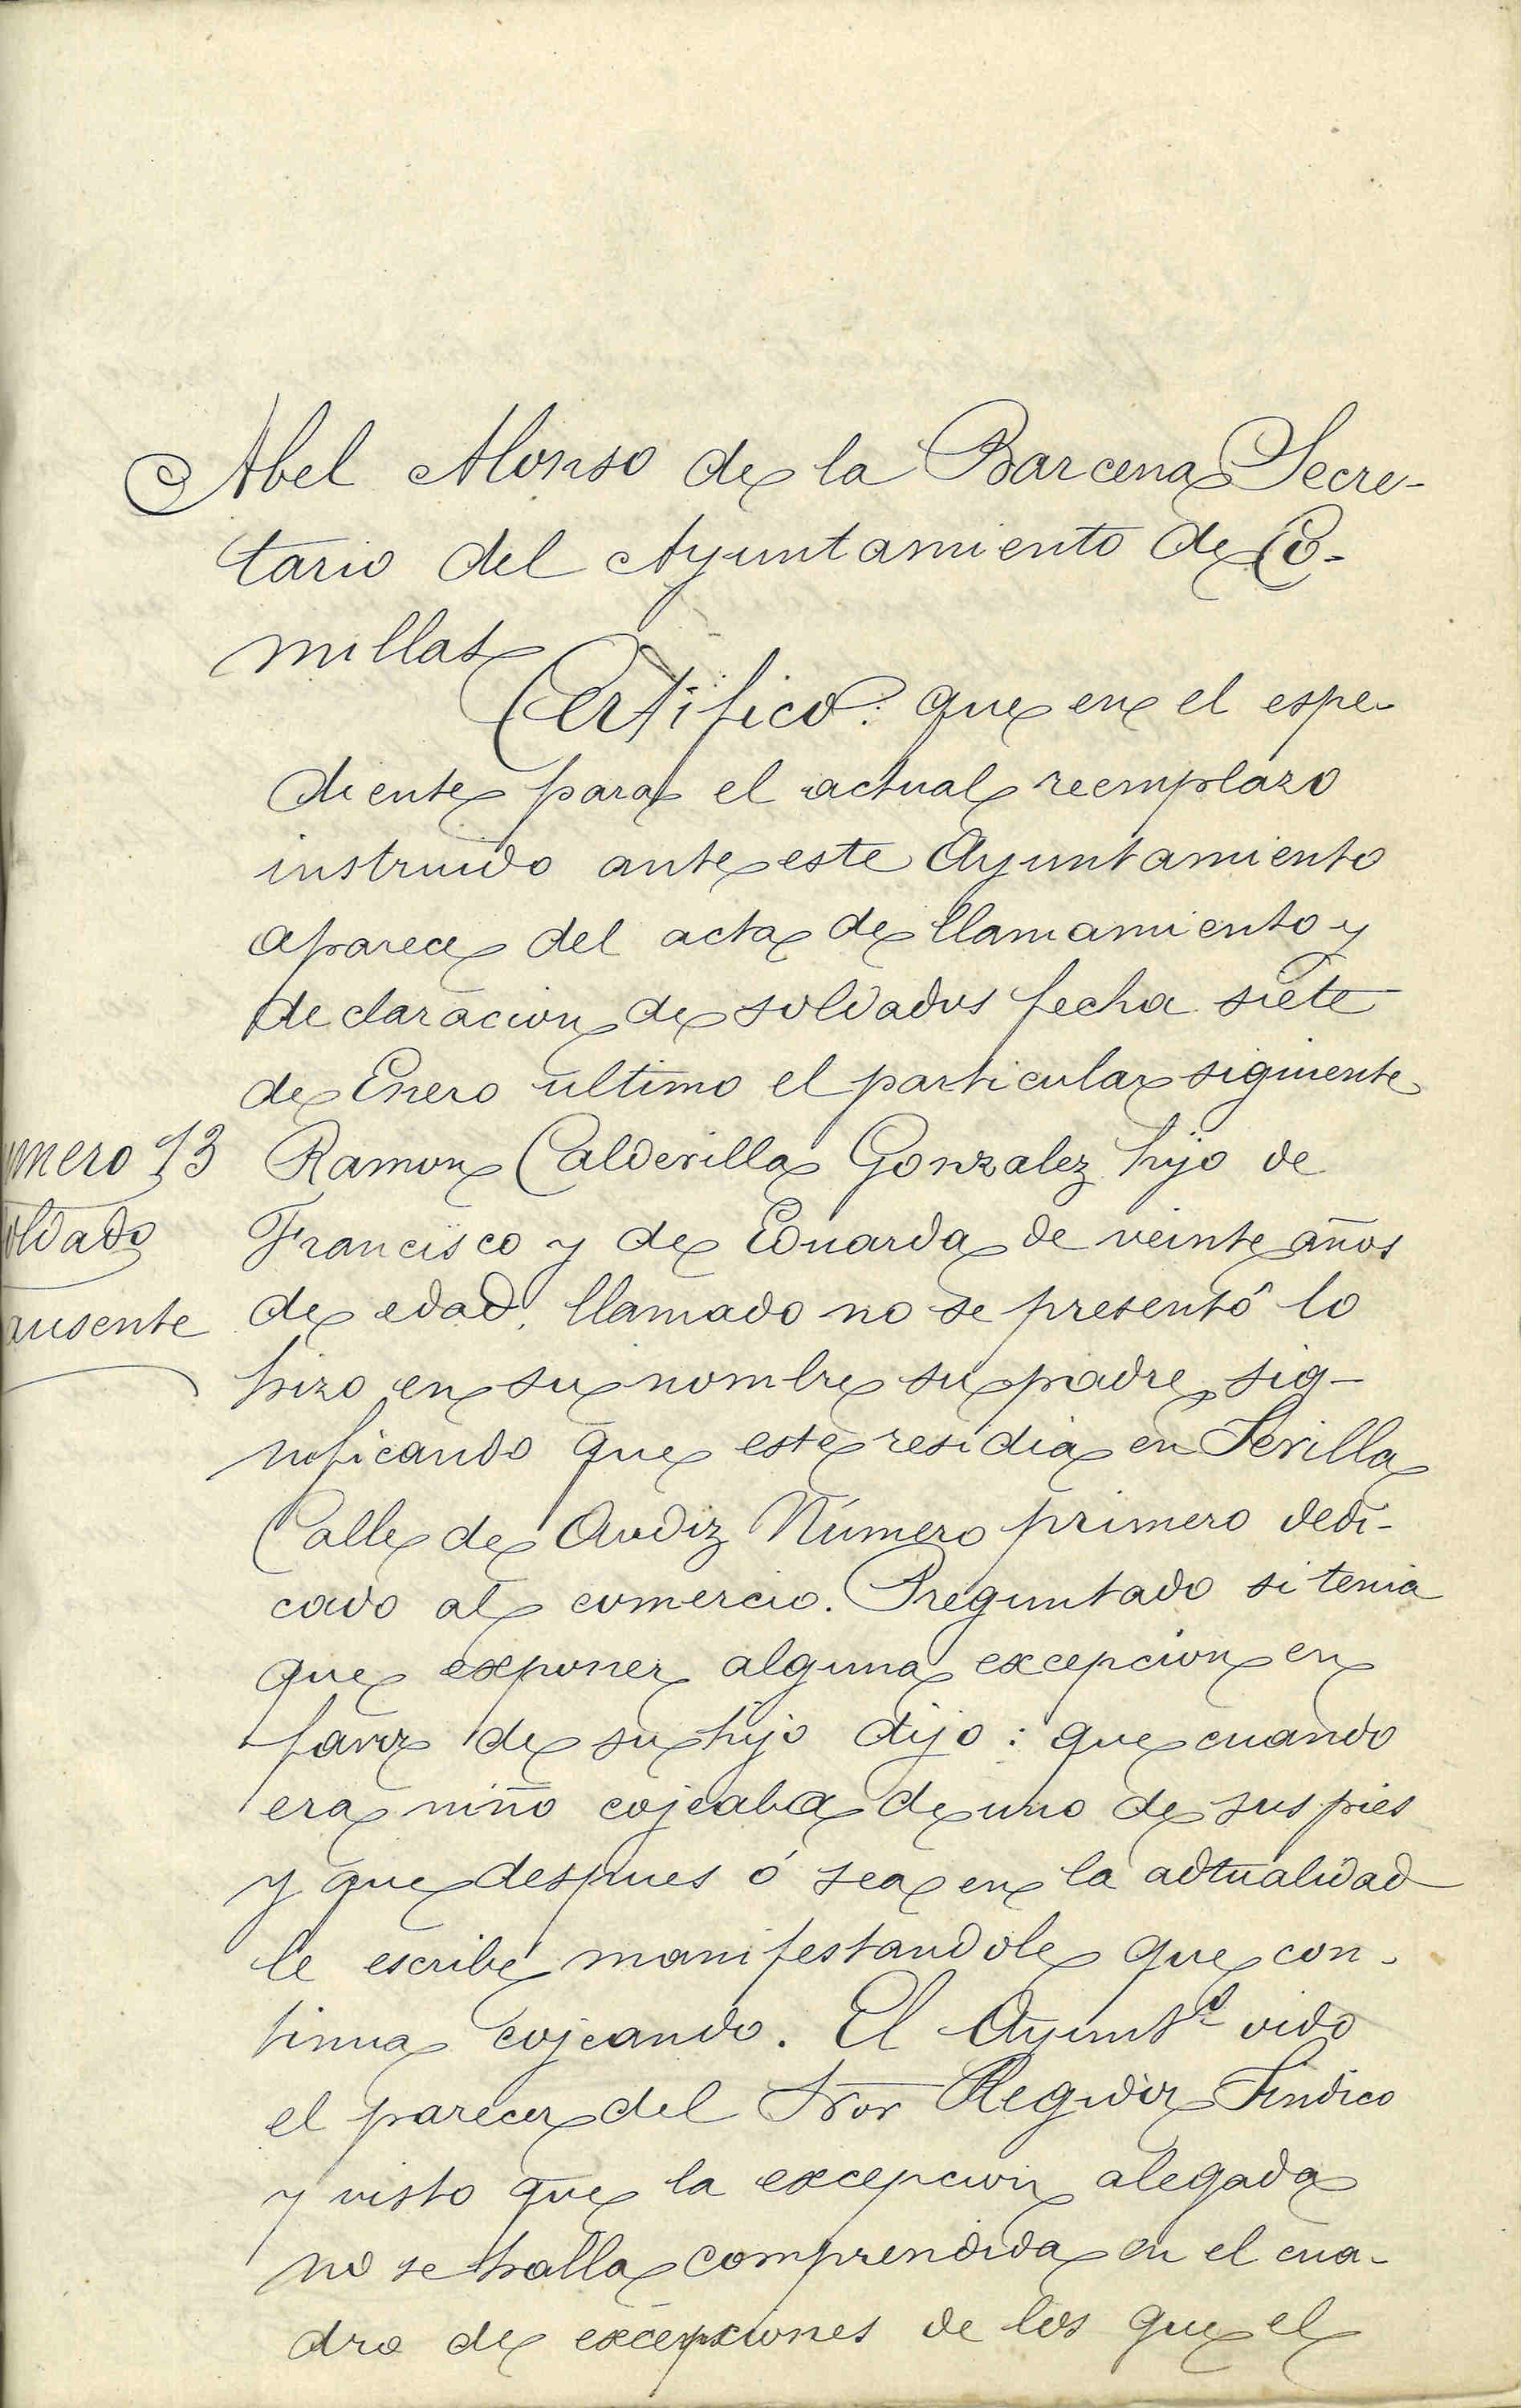 Abel Alonso de la Barcena Secre-
tario del Ayuntamiento de Co-
millas
Certifico: que en el espe-
diente para el actual reemplazo
instruido ante este Ayuntamiento
aparece del acta de llamamiento y
declaracion de soldados fecha siete
de Enero ultimo el particular siguiente
umero 13
oldado
ausente
Ramon Calderilla Gonzalez hijo de
Francisco y de Eduarda de veinte años
de edad, llamado no se presentó lo
hizo en su nombre su padre sig-
nificando que este residia en Sevilla
Calle de Número primero dedi-
cado al comercio. Preguntado si tenia
que exponer alguna excepcion en
favor de su hijo dijo: que cuando
era niño cojeaba de uno de sus pies
y que despues ó sea en la adtualidad
le escribe manifestandole que con-
tinua cojeando. El Ayuntº oido
el parecer del Sor Regidor Sindico
y visto que la excepcion alegada
no se halla comprendida en el cua-
dro de excepciones de los que el